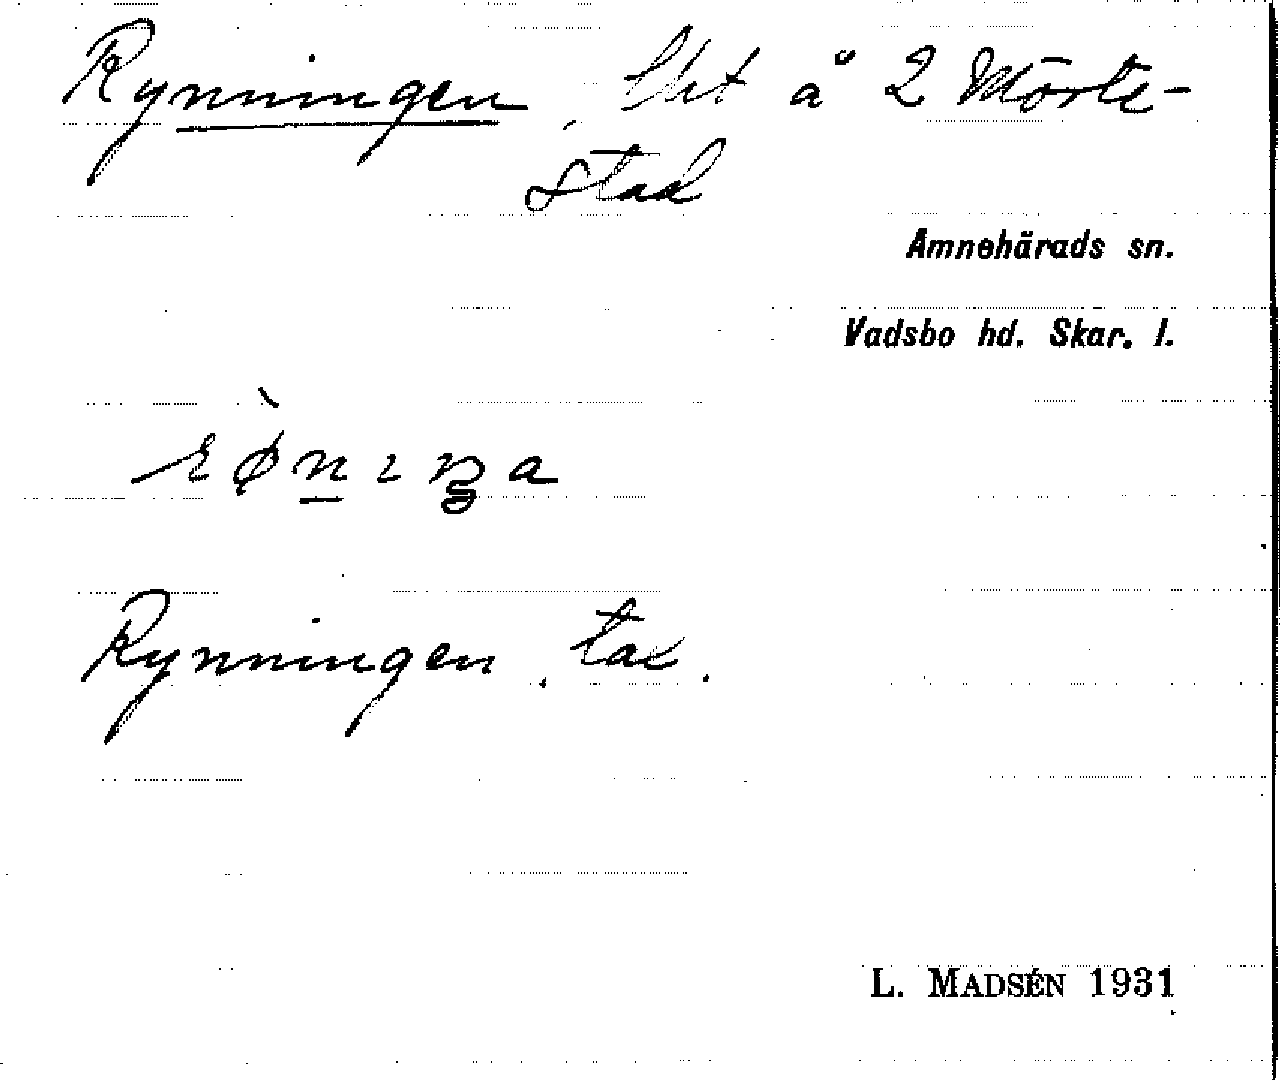 Rynningen, lht å 2 Mörte-
stad
Amnehärads sn.
Vadsbo hd. Skar. l.
Rynningen, tax.
L. MADSÉN 1931